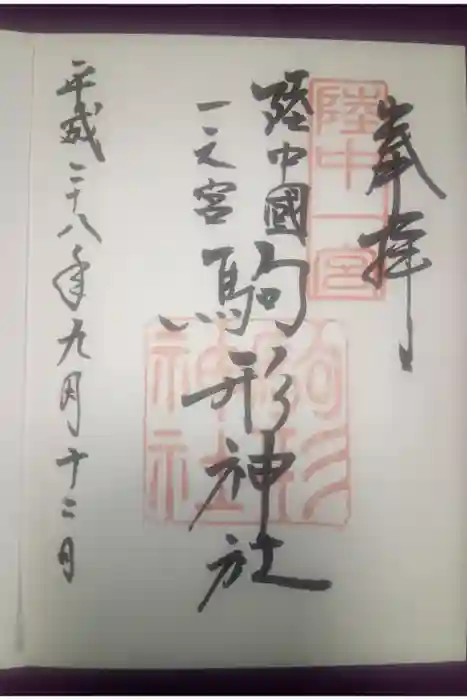 奉拝
陸中一宮
陸中國
一之宮
駒形神社
駒形神社
平成二十八年九月十二日